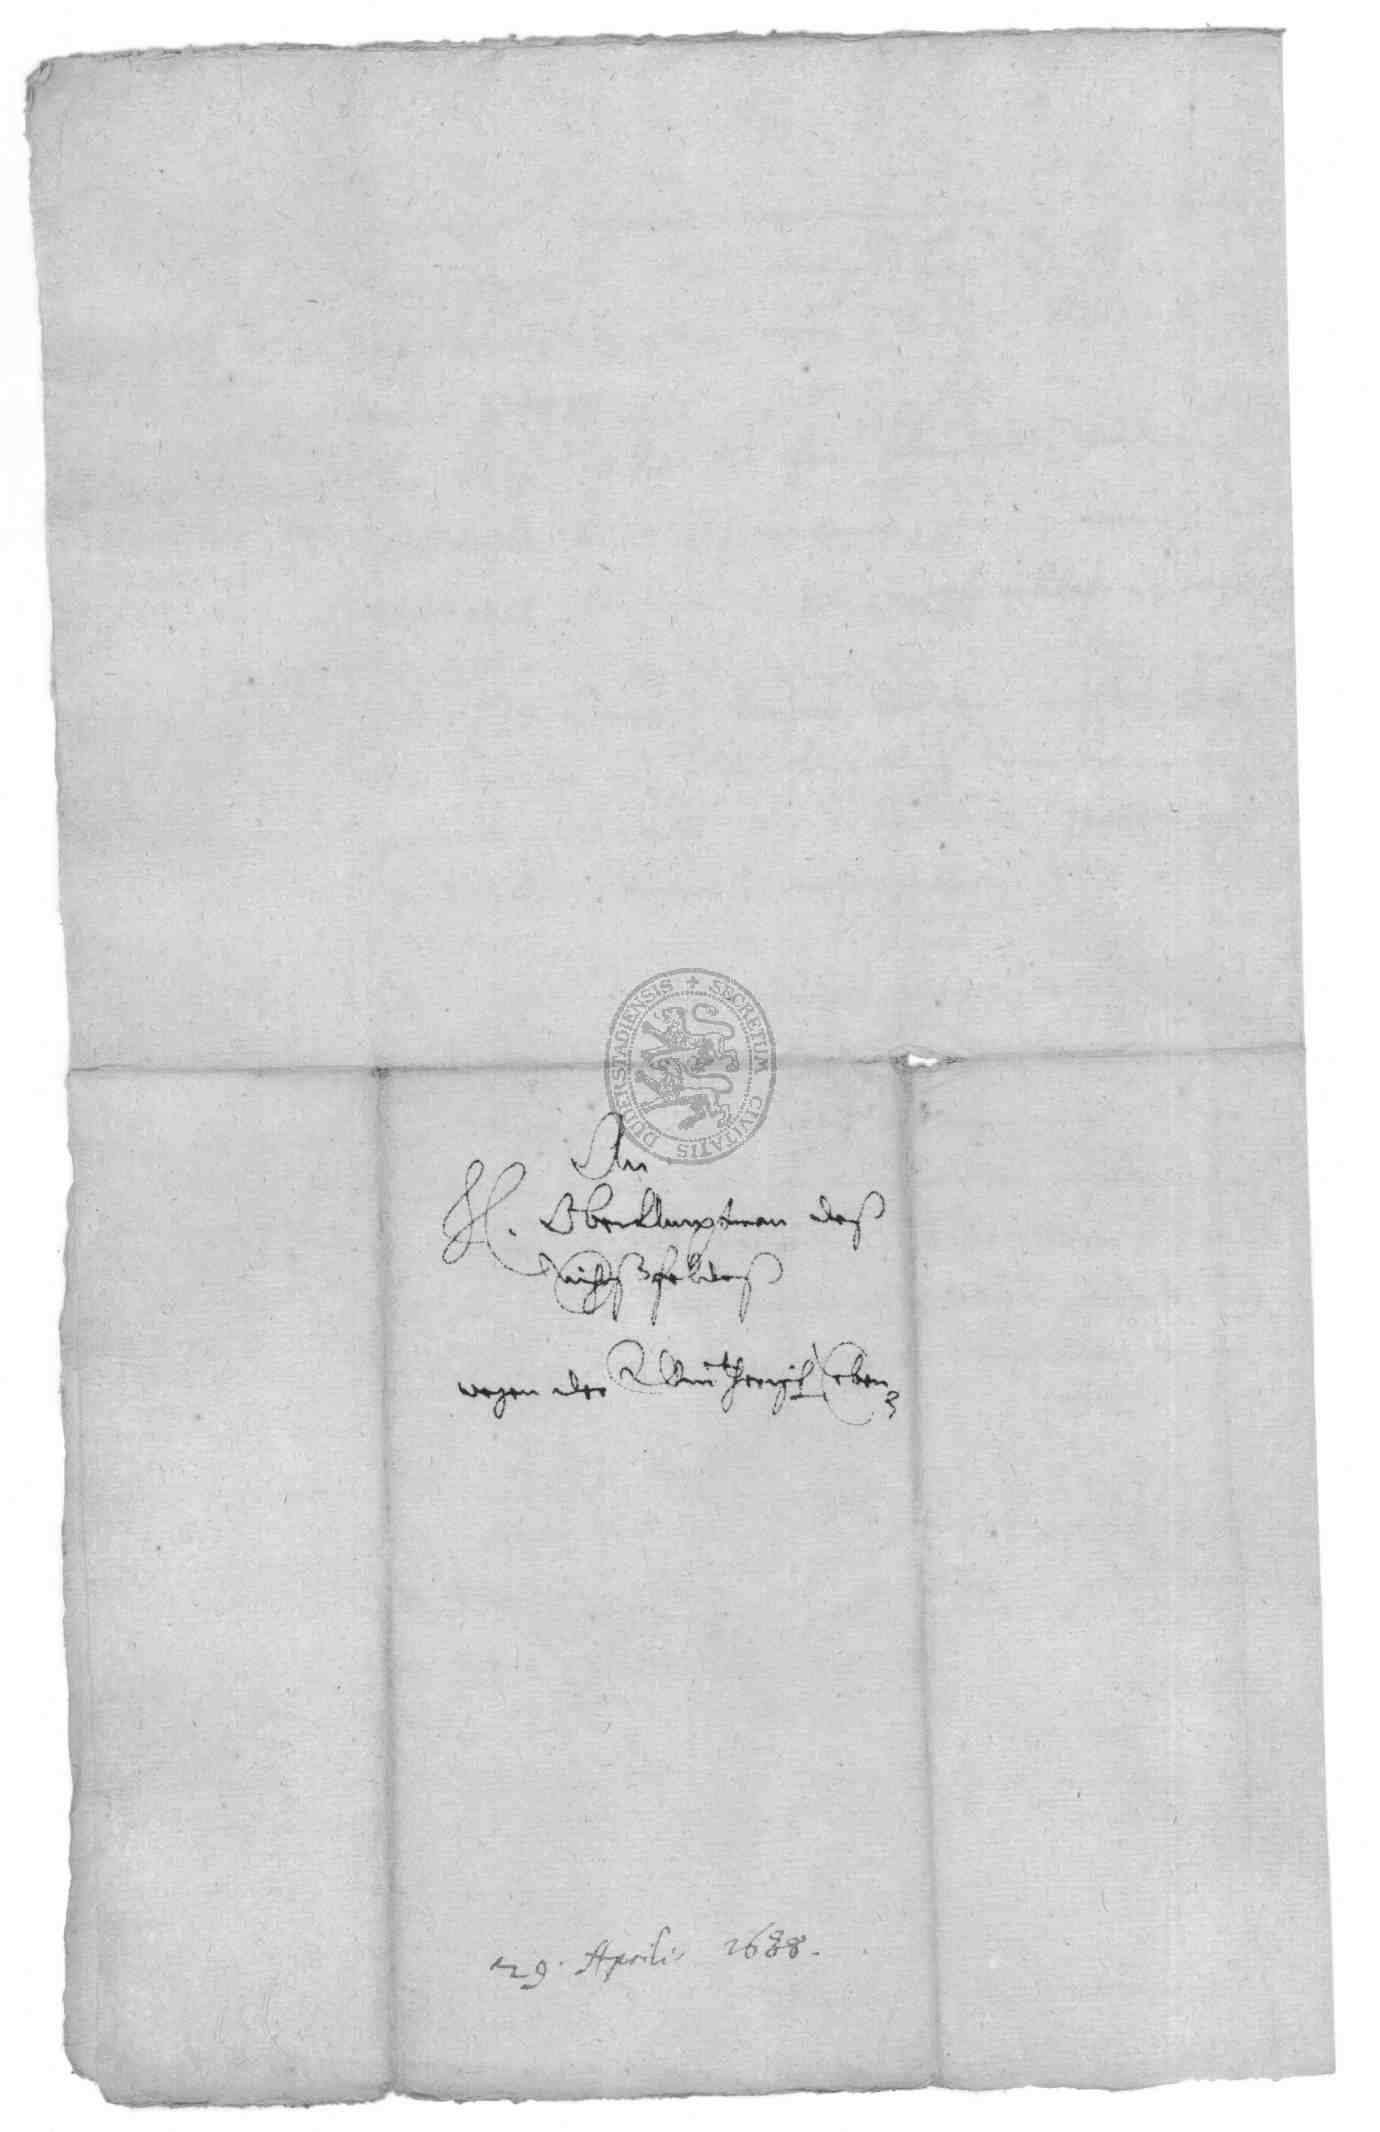 SECRETUM CIVITATIS DUDERSTADIENSIS
An
H. OberHauptman deß
Eichßfeldeß
wegen der
29. Aprilis 1688.